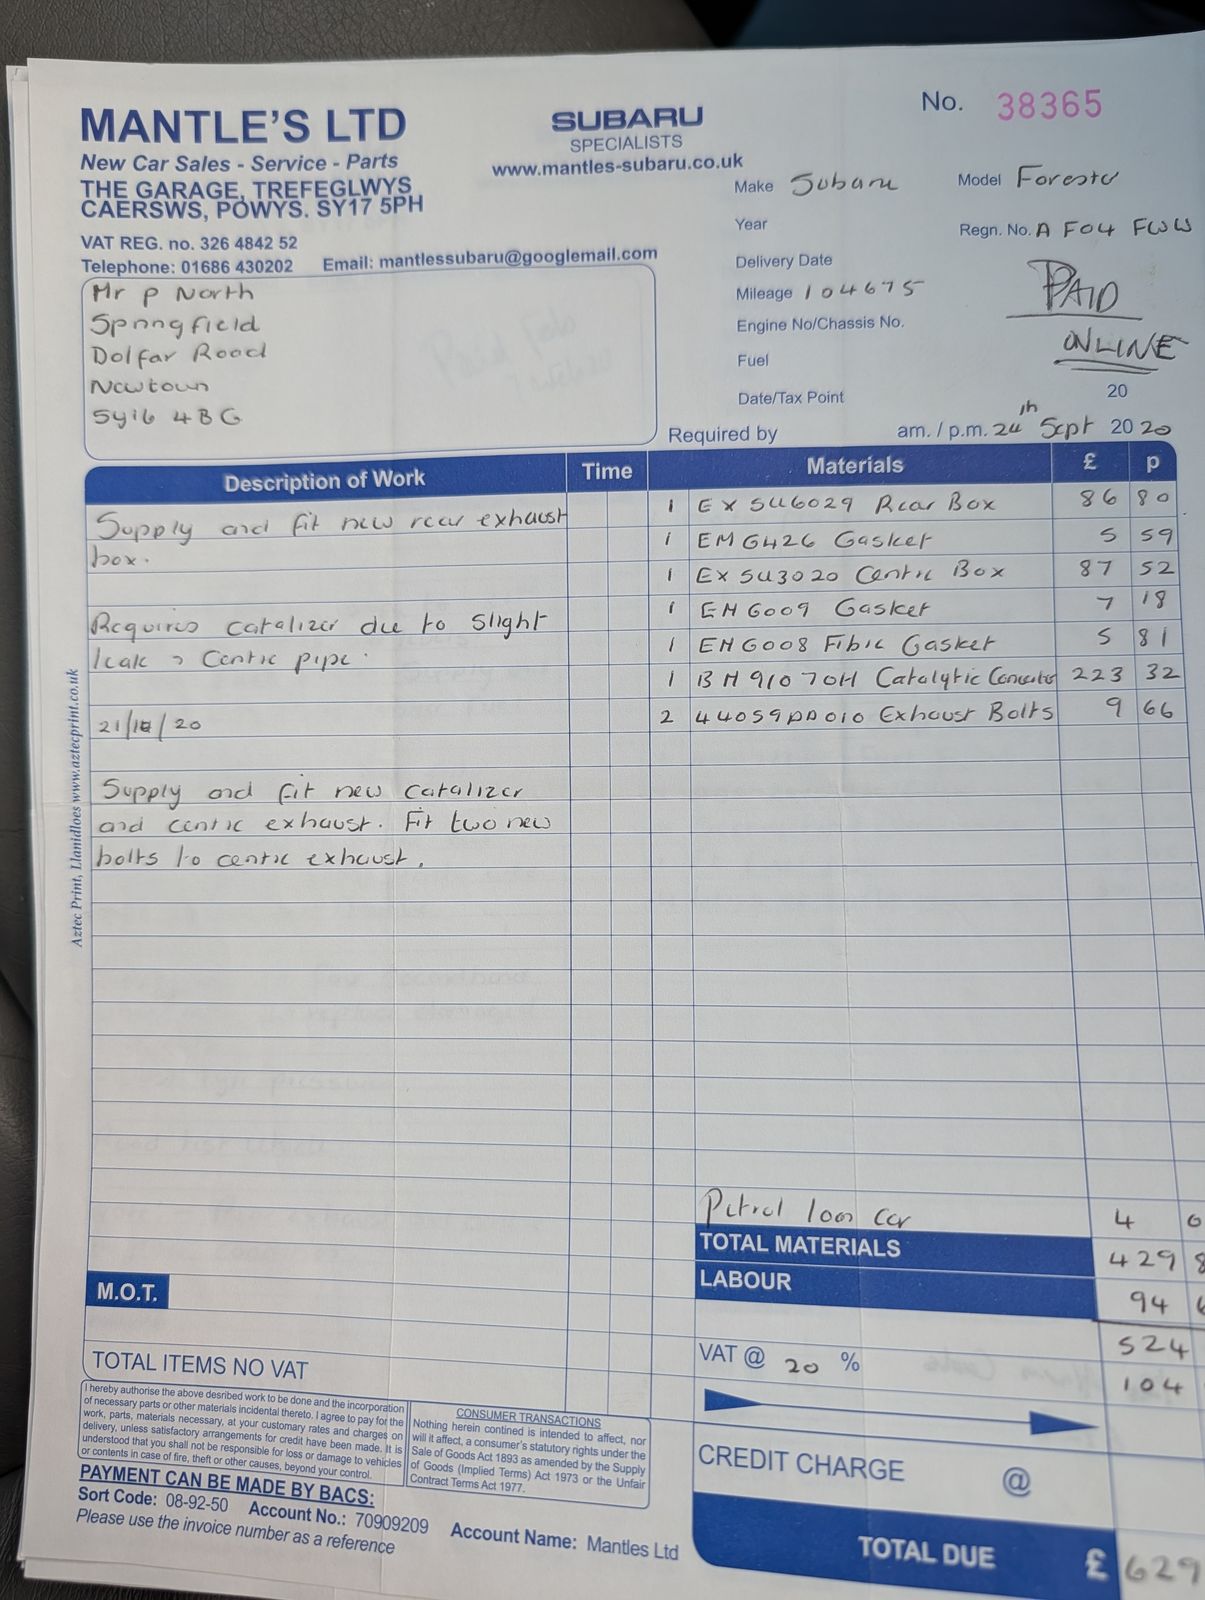 MANTLE'S LTD
New Car Sales - Service - Parts
THE GARAGE, TREFEGLWYS
CAERSWS, POWYS. SY17 5PH
VAT REG. no. 326 4842 52
Telephone: 01686 430202 Email: mantlessubaru@googlemail.com
SUBARU
SPECIALISTS
www.mantles-subaru.co.uk
No. 38365
Make Subaru Model Forester
Year Regn. No. AF04 FWW
Delivery Date
Mileage 104675
Engine No/Chassis No.
Fuel
Date/Tax Point 20
PAID
ONLINE
Required by am. / p.m. 24th Sept 2020
Mr P North
Springfield
Dolfar Road
Newtown
SY16 4BG
Description of Work Time Materials £ p
Supply and fit new rear exhaust
box.
Requires catalizer due to slight
leak > Centre pipe.
21/10/20
Supply and fit new catalizer
and centre exhaust. Fit two new
bolts to centre exhaust.
1 EXSU6029 Rear Box 86 80
1 EMG426 Gasket 5 59
1 EXSU3020 Centre Box 87 52
1 EHG009 Gasket 7 18
1 EHG008 Fibre Gasket 5 81
1 BM91070H Catalytic Converter 223 32
2 44059AA010 Exhaust Bolts 9 66
Petrol loan car 4 0
TOTAL MATERIALS 429 8
LABOUR 94 6
524
VAT @ 20 % 104
CREDIT CHARGE @
TOTAL DUE £ 629
M.O.T.
TOTAL ITEMS NO VAT
I hereby authorise the above desribed work to be done and the incorporation
of necessary parts or other materials incidental thereto. I agree to pay for the
work, parts, materials necessary, at your customary rates and charges on
delivery, unless satisfactory arrangements for credit have been made. It is
understood that you shall not be responsible for loss or damage to vehicles
or contents in case of fire, theft or other causes, beyond your control.
CONSUMER TRANSACTIONS
Nothing herein contined is intended to affect, nor
will it affect, a consumer's statutory rights under the
Sale of Goods Act 1893 as amended by the Supply
of Goods (Implied Terms) Act 1973 or the Unfair
Contract Terms Act 1977.
PAYMENT CAN BE MADE BY BACS:
Sort Code: 08-92-50 Account No.: 70909209 Account Name: Mantles Ltd
Please use the invoice number as a reference
Aztec Print, Llanidloes www.aztecprint.co.uk